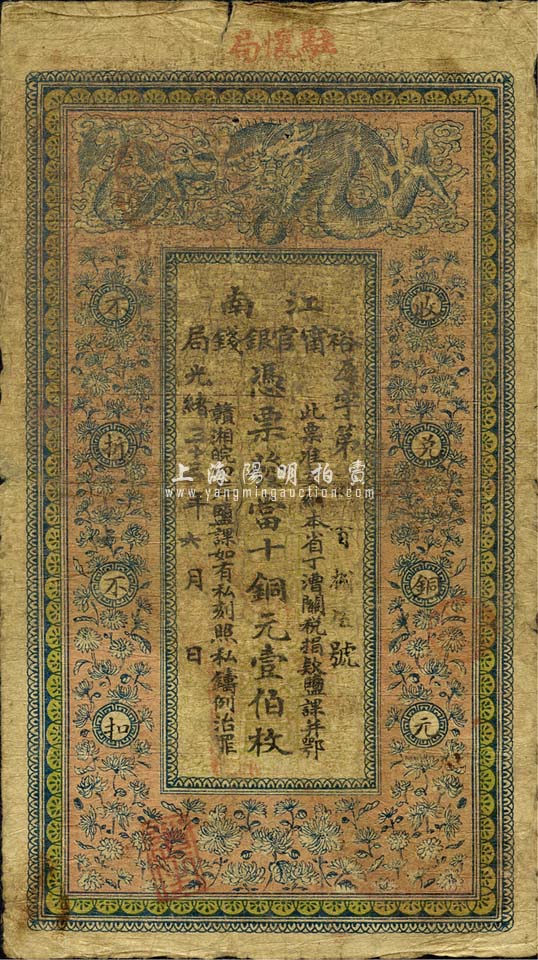 駐懷局
收兌銅元
不折不扣
江南
裕甯官銀錢局
字第
百捌
號
此票准
本省丁漕關稅捐款鹽課并鄂
憑票
當十銅元壹佰枚
贛湘皖
鹽課如有私刻照私鑄例治罪
光緒二十
年六月 日
上海陽明拍賣
www.yangmingauction.com